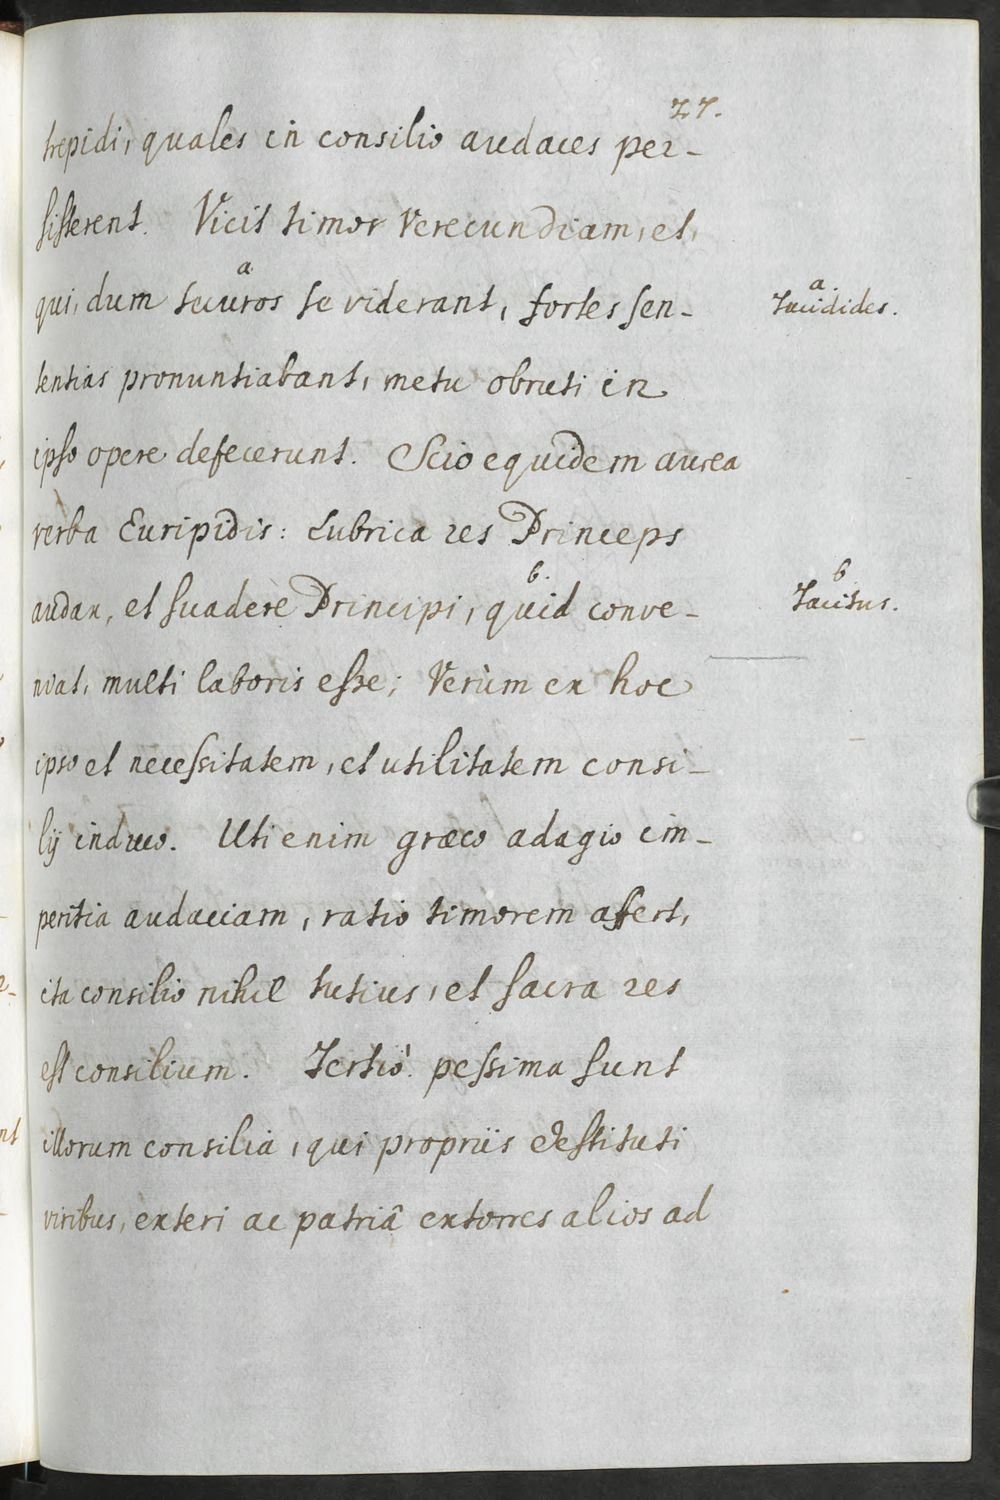 27.
trepidi, quales in consilio audaces per-
sisterent. Vicit timor Verecundiam, et,
qui, dum securos a se viderant, fortes sen-
a Tucidides.
tentias pronuntiabant, metu obruti in
ipso opere defecerunt. Scio equidem aurea
verba Euripidis: Lubrica res Princeps
audax, et suadere Principi, b. quid conve-
b Tacitus.
niat, multi laboris esse; Verùm ex hoc
ipso et necessitatem, et utilitatem consi-
lij induco. Uti enim græco adagio im-
peritia audaciam, ratio timorem affert,
ita consilio nihil tutius, et sacra res
est consilium. Tertiò. pessima sunt
illorum consilia, qui propriis destituti
viribus, exteri ac patriâ extorres alios ad